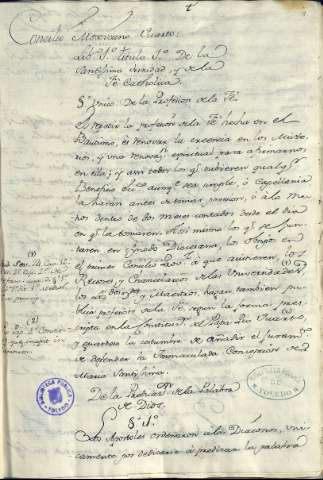 Concilio Mexicano Quarto:
Lib. 1º Titulo 1º De la
Santissima Trinidad, y de la
Fe Catholica.
§º Unico De la Profesion de la Fe.
El repetir la profesion de la Fe hecha en el
Bautismo, es renovar la creencia en los Misterios,
y una renovaz.n espiritual para afirmarnos
en ella; y asi todos los q.e obtubieren qualq.r
Beneficio ecc.co aunq.e sea simple, ò Capellania
la haràn antes de tomar posesion, ò à lo menos
dentro de dos meses contados desde el dia
en q.e la tomaren. Asi mismo los q.e se juntaren
en Synodo Diocesana, los Obispos en
el primer Concilio Prov.l à que asistieren, los
Rectores, y Chancilleres de las Universidades,
los y Maestros, hagan tambien
profesion de la Fe segun la forma prescripta
en la Constituc.n del Papa Pio Quarto,
y guarden la costumbre de añadir el juram.to
de defender la Inmaculada Concepcion de
Maria Santissima.
De la Predicac.n de la Palabra
de Dios.
§º 1º.
Los Apostoles ordenaron à los Diaconos, unicamente
por dedicarse à predicar la palabra
(1)
(2)
BIBLIOTECA PUBLICA
TOLEDO
TOLEDO